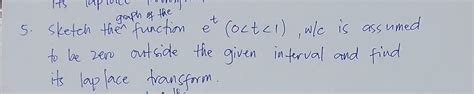 Its laplace
graph of the
5. sketch the function e^t (0<t<1), w/c is assumed
to be zero outside the given interval and find
its laplace transform.